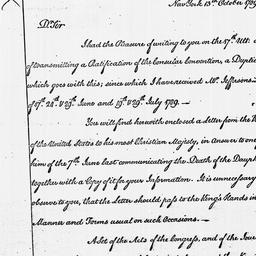 New York 13th October 1789
D.r Sir
I had the Pleasure of writing to you on the
of transmitting a Ratification of the Consular Convention, a Duplic
which goes with this; since which I have received Mr. Jefferson's
of 17th. 24th & 29th. June and 19th & 29th. July 1789.—
You will find herewith enclosed a Letter from the
of the United States to his most Christian Majesty, in answer to one
him of the 7th. June last communicating the Death of the Dauph
together with a Copy of it for your Information. It is unnecessary
observe to you, that the Letter should pass to the King's Hands in
Manner and Forms usual on such Occasions.—
A Set of the Acts of the Congress, and of the Jour